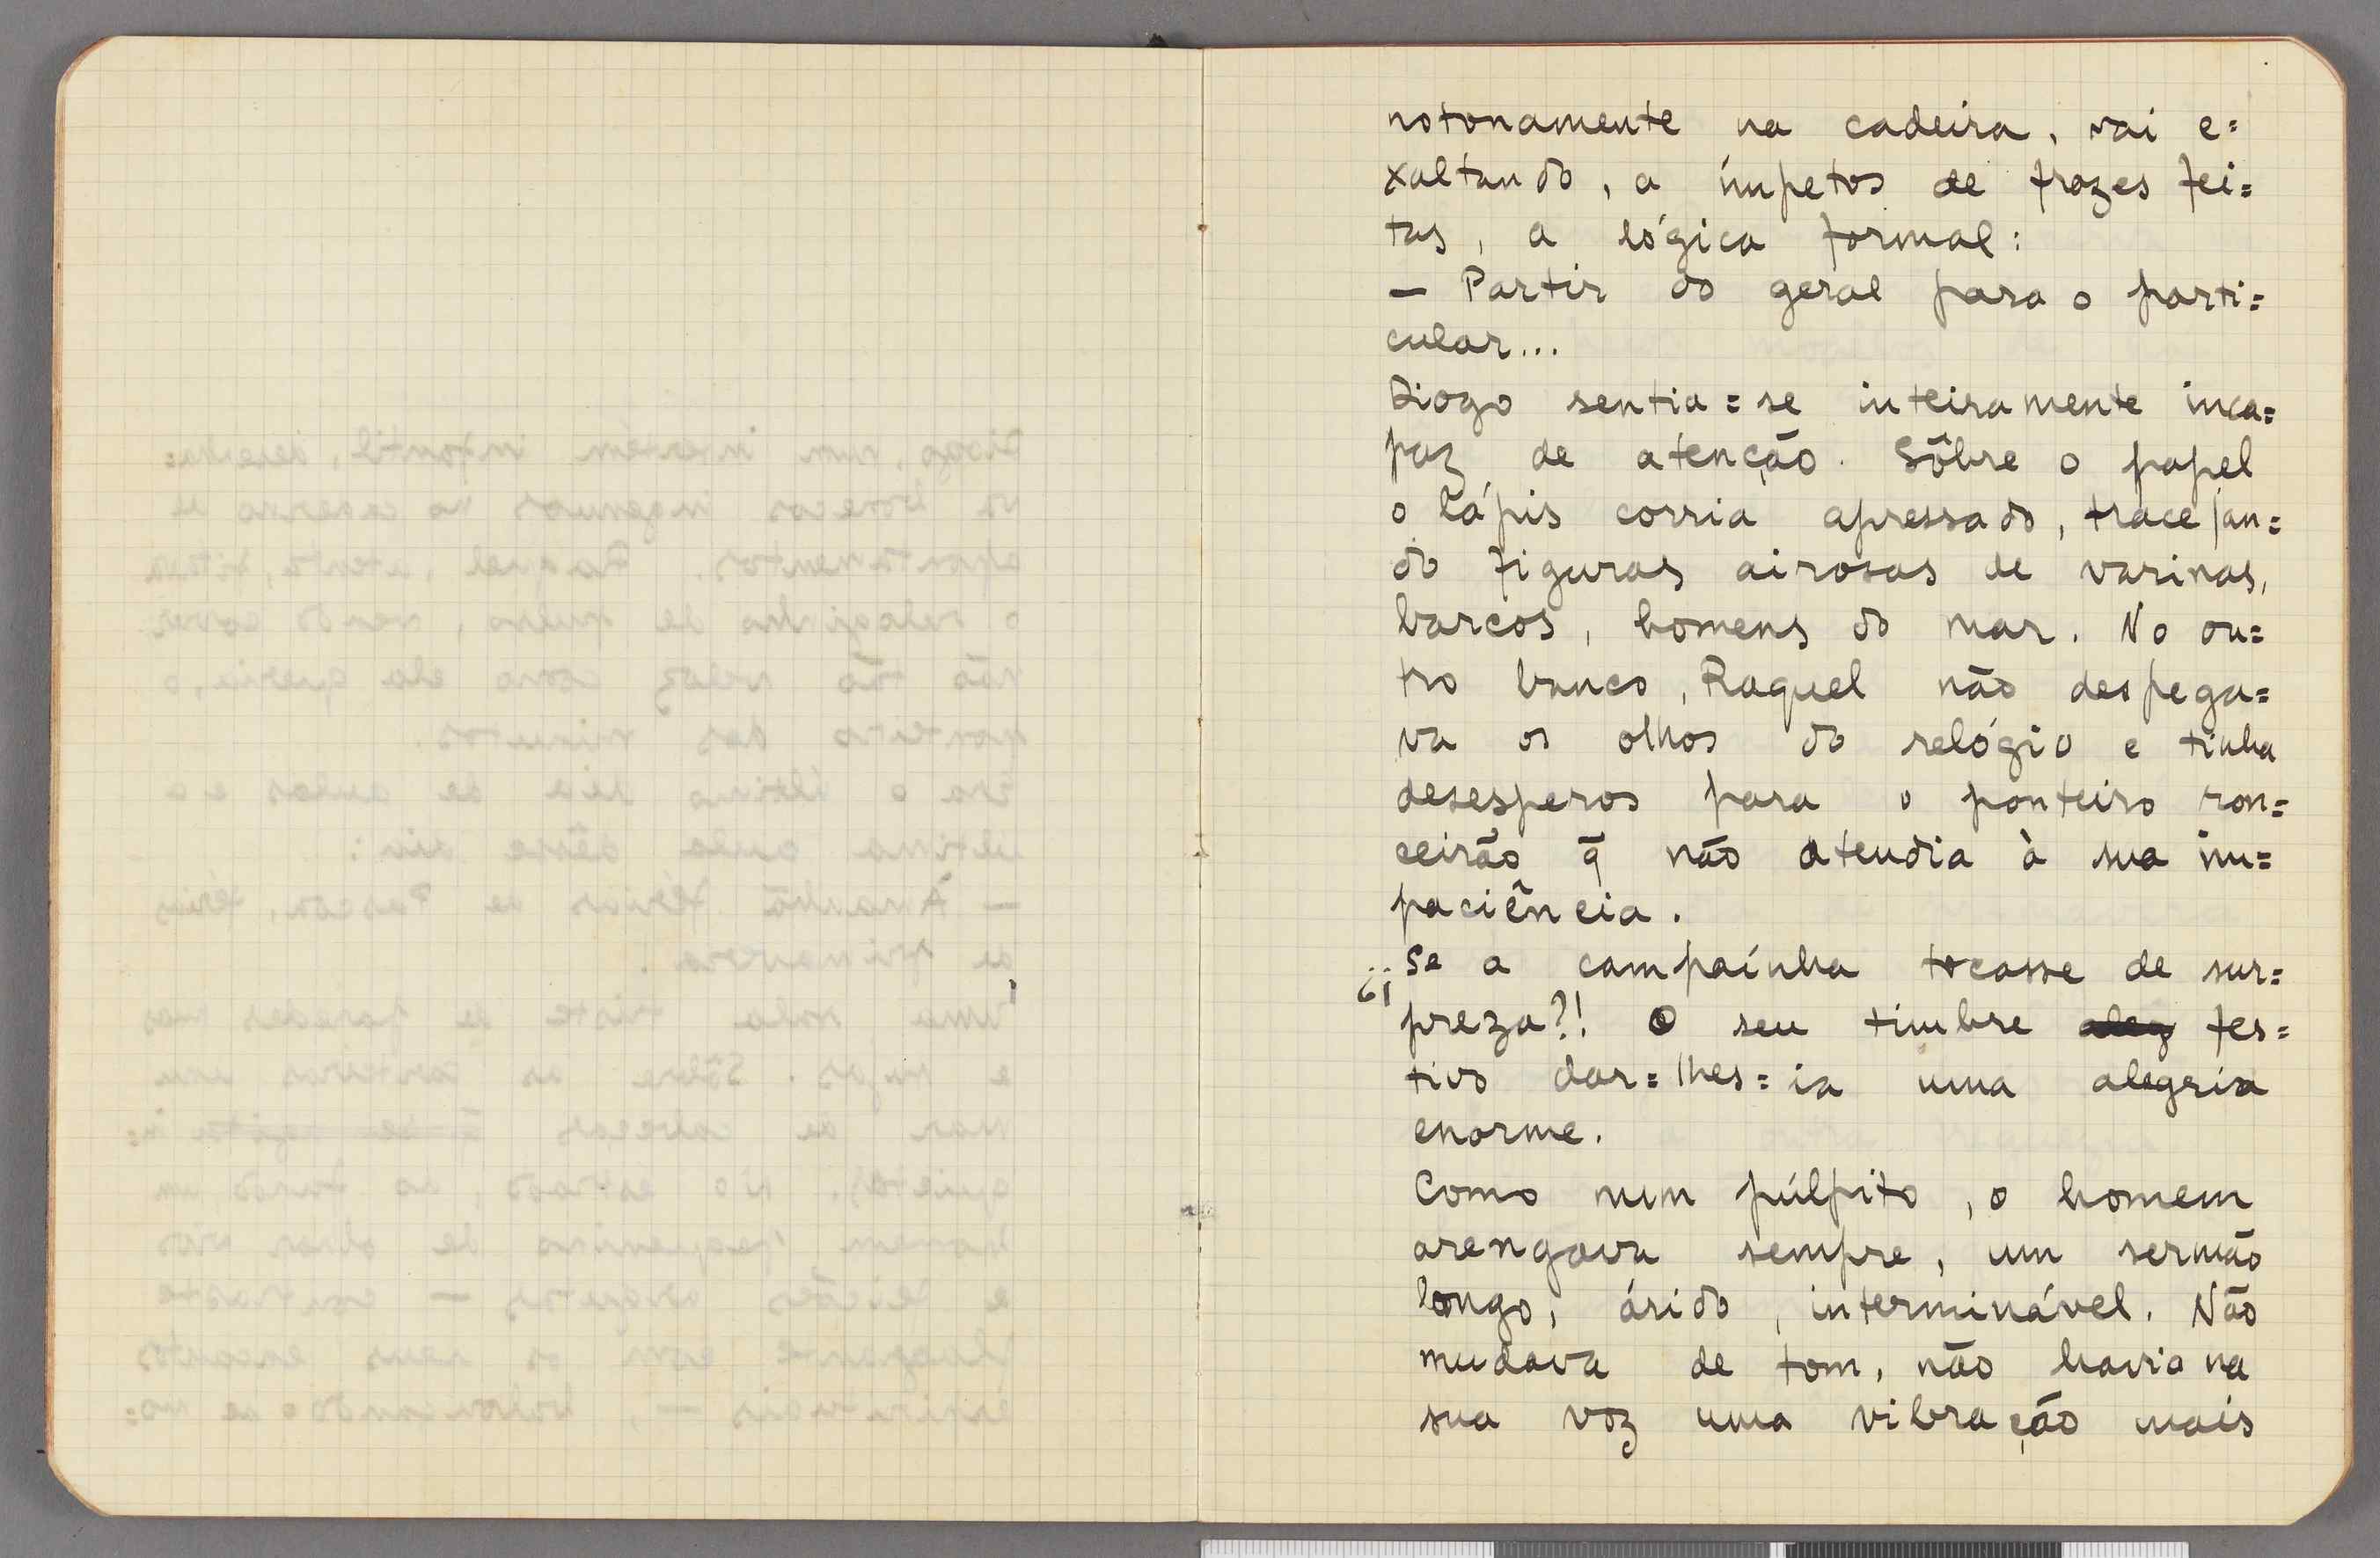 notonamente na cadeira, vai e=
xaltando, a ímpetos de frazes fei=
tas, a lógica formal:
— Partir do geral para o parti=
cular...
Diogo sentia=se inteiramente inca=
paz de atenção. Sôbre o papel
o lápis corria apressado, tracejan=
do figuras airosas de varinas,
barcos, homens do mar. No ou=
tro banco, Raquel não despega=
va os olhos do relógio e tinha
desesperos para o ponteiro ron=
ceirão q̃ não atendia à sua im=
paciência.
¿¡ Se a campaínha tocasse de sur=
preza?! O seu timbre ~~aleg~~ fes=
tivo dar=lhes=ia uma alegria
enorme.
Como num púlpito, o homem
arengava sempre, um sermão
longo, árido, interminável. Não
mudava de tom, não havia na
sua voz uma vibração mais